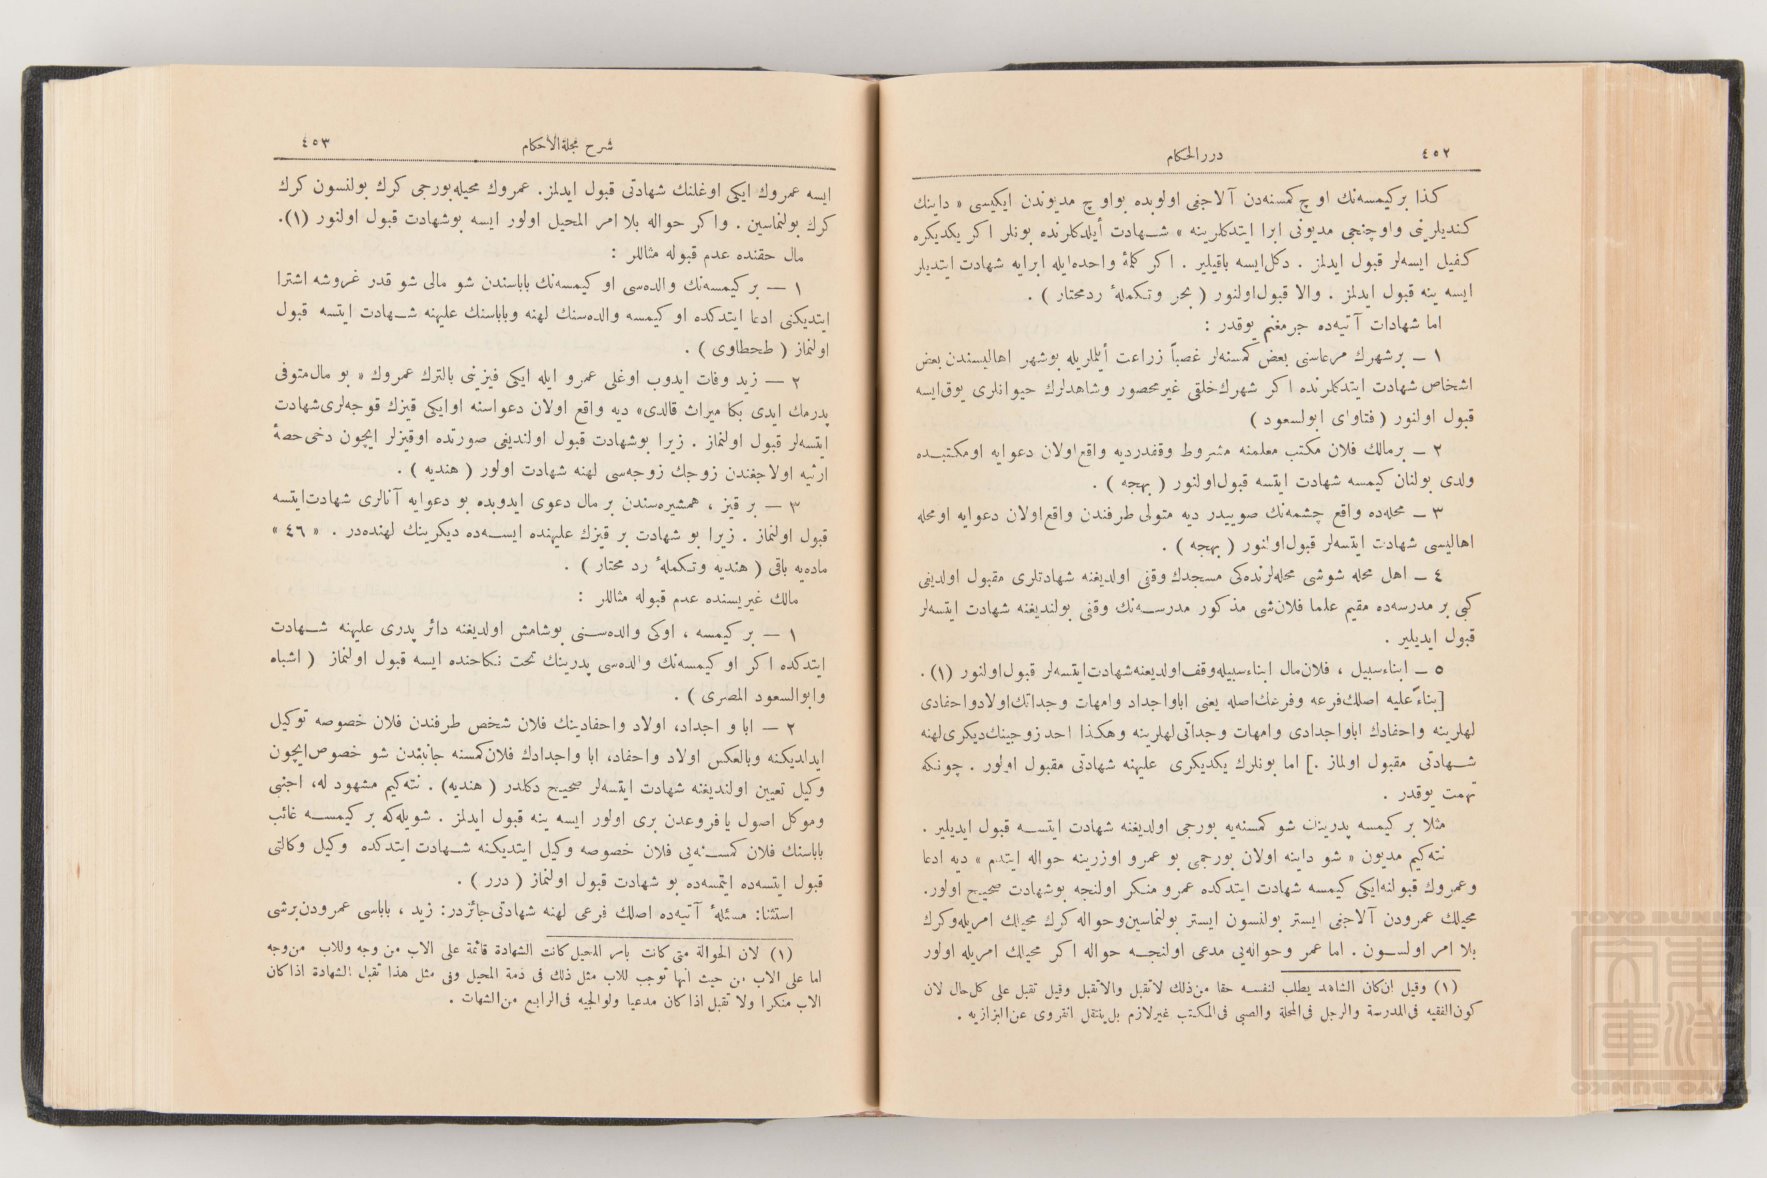 ٤٥٢
درر الحكام
كذا بركيمسه‌نك اوچ كمسنه‌دن آلاجغى اولوبده بواوچ مديوندن ايكيسى « داينك
كنديلرينى واوچنجى مديونى ابرا ايتدكلرينه » شهادت أيلدكلرنده بونلر اكر يكديكره
كفيل ايسه‌لر قبول ايدلمز . دكل‌ايسه باقيلير . اكر كلمهٔ واحده‌ايله ابرايه شهادت ايتديلر
ايسه ينه قبول ايدلمز . والا قبول‌اولنور ( بحر وتكملهٔ ردمحتار ) .
اما شهادات آتيه‌ده جرمغنم يوقدر :
١ – برشهرك مرعاسنى بعض كمسنه‌لر غصباً زراعت أيلملريله بوشهر اهاليسندن بعض
اشخاص شهادت ايتدكلرنده اكر شهرك‌خلقى غيرمحصور وشاهدلرك حيوانلرى يوق‌ايسه
قبول اولنور ( فتاواى ابوالسعود )
٢ – برمالك فلان مكتب معلمنه مشروط وقفدرديه واقع‌اولان دعوايه اومكتبده
ولدى بولنان كيمسه شهادت ايتسه قبول‌اولنور ( بهجه ) .
٣ – محله‌ده واقع چشمه‌نك صوييدر ديه متولى طرفندن واقع‌اولان دعوايه اومحله
اهاليسى شهادت ايتسه‌لر قبول‌اولنور ( بهجه ) .
٤ – اهل محله شوشى محله‌لرنده‌كى مسجدك وقفى اولديغنه شهادتلرى مقبول اولديغى
كبى بر مدرسه‌ده مقيم علما فلان‌شى مذكور مدرسه‌نك وقفى بولنديغنه شهادت ايتسه‌لر
قبول ايديلير .
٥ – ابناءسبيل ، فلان‌مال ابناءسبيله‌وقف‌اولديغنه‌شهادت‌ايتسه‌لر قبول‌اولنور (١) .
[بناءً عليه اصلك‌فرعه وفرعك‌اصله يعنى اباواجداد وامهات وجداتك‌اولادواحفادى
لهلرينه واحفادك اباواجدادى وامهات وجداتى‌لهلرينه وهكذا احد زوجينك‌ديكرى‌لهنه
شهادتى مقبول اولماز .] اما بونلرك يكديكرى عليهنه شهادتى مقبول اولور . چونكه
تهمت يوقدر .
مثلا بر كيمسه پدرينك شو كمسنه‌يه بورجى اولديغنه شهادت ايتسه قبول ايديلير .
نته‌كيم مديون « شو داينه اولان بورجمى بو عمرو اوزرينه حواله ايتدم » ديه ادعا
وعمروك قبولنه‌ايكى كيمسه شهادت ايتدكده عمرو منكر اولنجه بوشهادت صحيح اولور.
محيلك عمرودن آلاجغى ايستر بولنسون ايستر بولنماسين‌وحواله كرك محيلك امريله‌وكرك
بلا امر اولسون . اما عمر وحواله‌يى مدعى اولنجه حواله اكر محيلك امريله اولور
(١) وقيل ان‌كان الشاهد يطلب لنفسه حقا من‌ذلك لاتقبل والاتقبل وقيل تقبل على كل‌حال لان
كون‌الفقيه فى‌المدرسة والرجل فى‌المحلة والصبى فى‌المكتب غيرلازم بل‌ينتقل انقروى عن‌البزازيه .
شرح مجلةالأحكام
٤٥٣
ايسه عمروك ايكى اوغلنك شهادتى قبول ايدلمز. عمروك محيله‌بورجى كرك بولنسون كرك
كرك بولنماسين . واكر حواله بلا امر المحيل اولور ايسه بوشهادت قبول اولنور (١).
مال حقنده عدم قبوله مثاللر :
١ — بر كيمسه‌نك والده‌سى او كيمسه‌نك باباسندن شو مالى شو قدر غروشه اشترا
ايتديكنى ادعا ايتدكده او كيمسه والده‌سنك لهنه وباباسنك عليهنه شهادت ايتسه قبول
اولنماز ( طحطاوى ) .
٢ — زيد وفات ايدوب اوغلى عمرو ايله ايكى قيزينى بالترك عمروك « بو مال‌متوفى
پدرمك ايدى بكا ميراث قالدى» ديه واقع اولان دعواسنه اوايكى قيزك قوجه‌لرى‌شهادت
ايتسه‌لر قبول اولنماز . زيرا بوشهادت قبول اولنديغى صورتده اوقيزلر ايچون دخى حصهٔ
ارثيه اولاجغندن زوجك زوجه‌سى لهنه شهادت اولور ( هنديه ) .
٣ — بر قيز ، همشيره‌سندن بر مال دعوى ايدوبده بو دعوايه آنالرى شهادت‌ايتسه
قبول اولنماز . زيرا بو شهادت بر قيزك عليهنده ايسه‌ده ديكرينك لهنده‌در . « ٤٦ »
ماده‌يه باقى ( هنديه وتكملهٔ رد محتار ) .
مالك غيريسنده عدم قبوله مثاللر :
١ — بر كيمسه ، اوكى والده‌سنى بوشامش اولديغنه دائر پدرى عليهنه شهادت
ايتدكده اكر او كيمسه‌نك والده‌سى پدرينك تحت نكاحنده ايسه قبول اولنماز ( اشباه
وابوالسعود المصرى ) .
٢ — ابا و اجداد، اولاد واحفادينك فلان شخص طرفندن فلان خصوصه توكيل
ايدلديكنه وبالعكس اولاد واحفاد، ابا واجدادك فلان‌كمسنه جانبندن شو خصوص‌ايچون
وكيل تعيين اولنديغنه شهادت ايتسه‌لر صحيح دكلدر ( هنديه) . نته‌كيم مشهود له، اجنبى
وموكل اصول يافروعدن برى اولور ايسه ينه قبول ايدلمز . شويله‌كه بر كيمسه غائب
باباسنك فلان كمسنه‌يى فلان خصوصه وكيل ايتديكنه شهادت ايتدكده وكيل وكالتى
قبول ايتسه‌ده ايتمسه‌ده بو شهادت قبول اولنماز ( درر ) .
استثنا: مسئلهٔ آتيه‌ده اصلك فرعى لهنه شهادتى‌جائزدر: زيد ، باباسى عمرودن‌برشى
(١) لان الحوالة متى كانت بامر المحيل كانت الشهادة قائمة على الاب من وجه وللاب من‌وجه
اما على الاب من حيث انها توجب للاب مثل ذلك فى ذمة المحيل وفى مثل هذا تقبل الشهادة اذاكان
الاب منكرا ولا تقبل اذاكان مدعيا ولوالجيه فى‌الرابع من‌الشهات .
TOYO BUNKO
東洋文庫
TOYO BUNKO